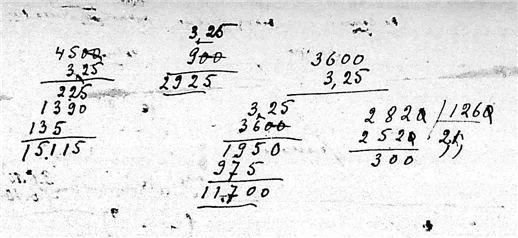 4500
3,25
225
1390
135
15.115
3,25
900
2925
3600
3,25
3,25
3600
1950
975
11.700
2820 | 1260
2520 2,
300